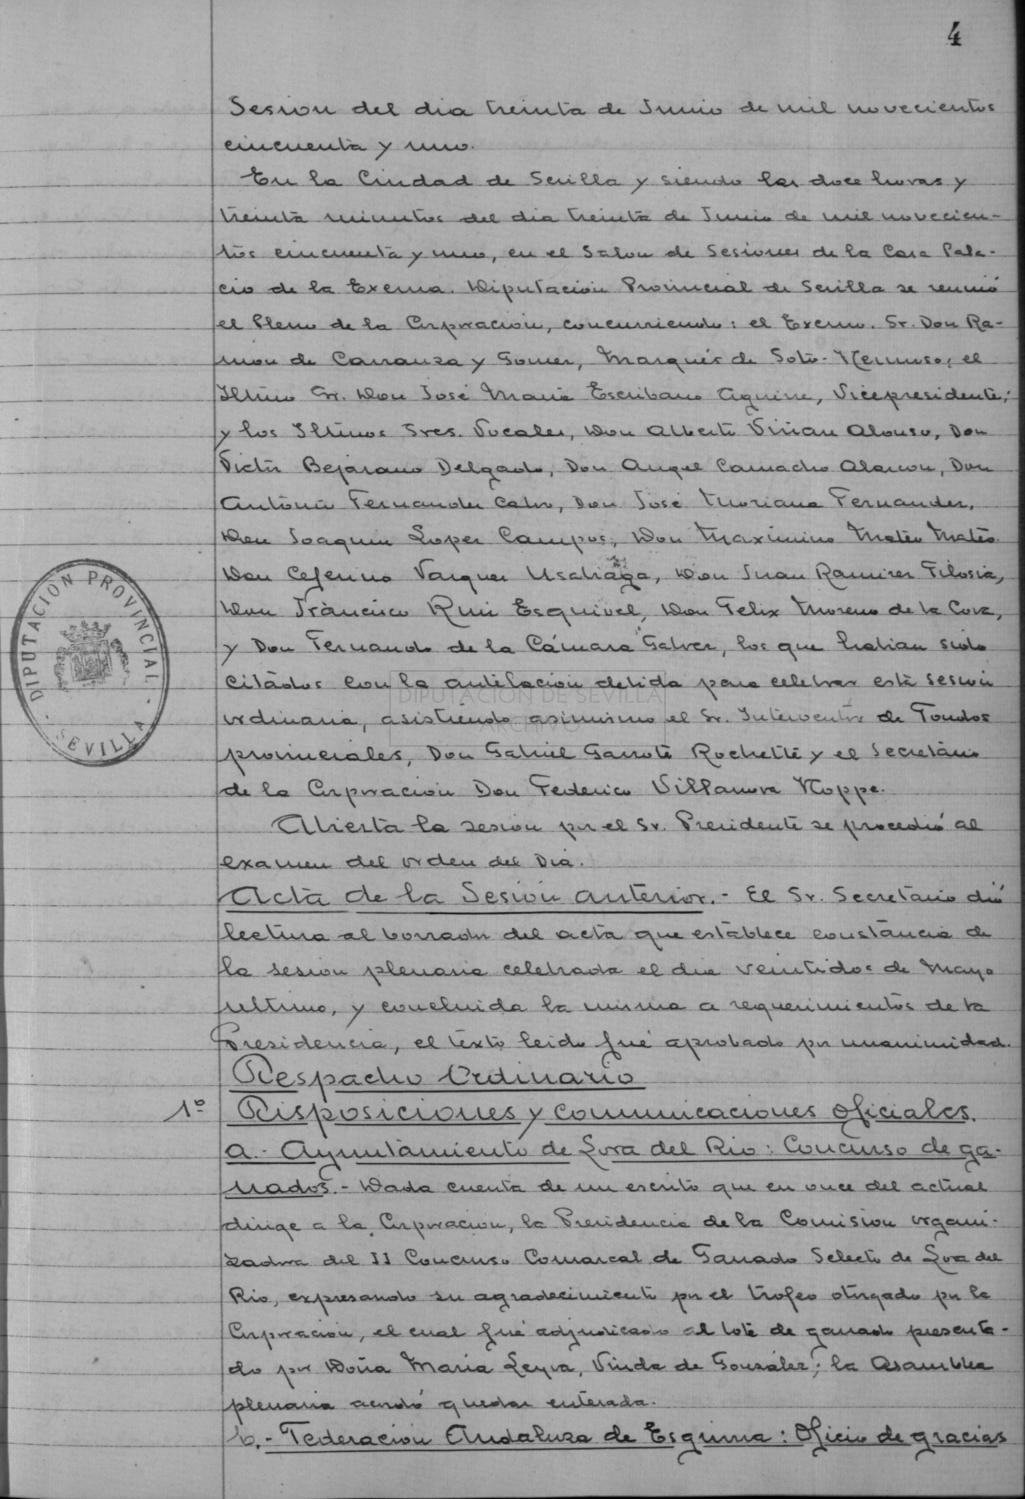 4
Sesion del dia treinta de Junio de mil novecientos
cincuenta y uno.
En la Ciudad de Sevilla y siendo las doce horas y
treinta minutos del dia treinta de Junio de mil novecien-
tos cincuenta y uno, en el Salon de Sesiones de la Casa Pala-
cio de la Excma. Diputacion Provincial de Sevilla se reunió
el Pleno de la Corporacion, concurriendo: el Excmo. Sr. Don Ra-
mon de Carranza y Gomez, Marqués de Soto-Hermoso; el
Iltmo Sr. Don José Maria Escribano Aguirre, Vicepresidente;
y los Iltmos Sres. Vocales, Don Alberto Viñan Alonso, Don
Victor Bejarano Delgado, Don Angel Camacho Alarcon, Don
Antonio Fernandez Calvo, Don José Moriana Fernandez,
Don Joaquin Lopez Campos, Don Maximino Mateo Mateo
Don Ceferino Vazquez Usabiaga, Don Juan Ramirez Filosia,
Don Francisco Ruiz Esquivel, Don Felix Moreno de la Cova,
y Don Fernando de la Cámara Galvez, los que habian sido
citados con la antelacion debida para celebrar esta sesion
ordinaria, asistiendo asimismo el Sr. Interventor de Fondos
provinciales, Don Gabriel Garrote Rochette y el Secretario
de la Corporacion Don Federico Villanova Hoppe.
Abierta la sesion por el Sr. Presidente se procedió al
examen del orden del Dia.
Acta de la Sesion anterior.- El Sr. Secretario dió
lectura al borrador del acta que establece constancia de
la sesion plenaria celebrada el dia veintidos de Mayo
ultimo, y concluida la misma a requerimientos de la
Presidencia, el texto leido fué aprobado por unanimidad.
Despacho Ordinario
1º Disposiciones y comunicaciones oficiales.
a.- Ayuntamiento de Lora del Rio: Concurso de ga-
nados.- Dada cuenta de un escrito que en once del actual
dirige a la Corporacion, la Presidencia de la Comision organi-
zadora del II Concurso Comarcal de Ganado Selecto de Lora del
Rio, expresando su agradecimiento por el trofeo otorgado por la
Corporacion, el cual fué adjudicado al lote de ganado presenta-
do por Doña Maria Leyva, Viuda de González; la Asamblea
plenaria acordó quedar enterada.
b.- Federacion Andaluza de Esgrima: Oficio de gracias
DIPUTACION PROVINCIAL
SEVILLA
DIPUTACIÓN DE SEVILLA
ARCHIVO